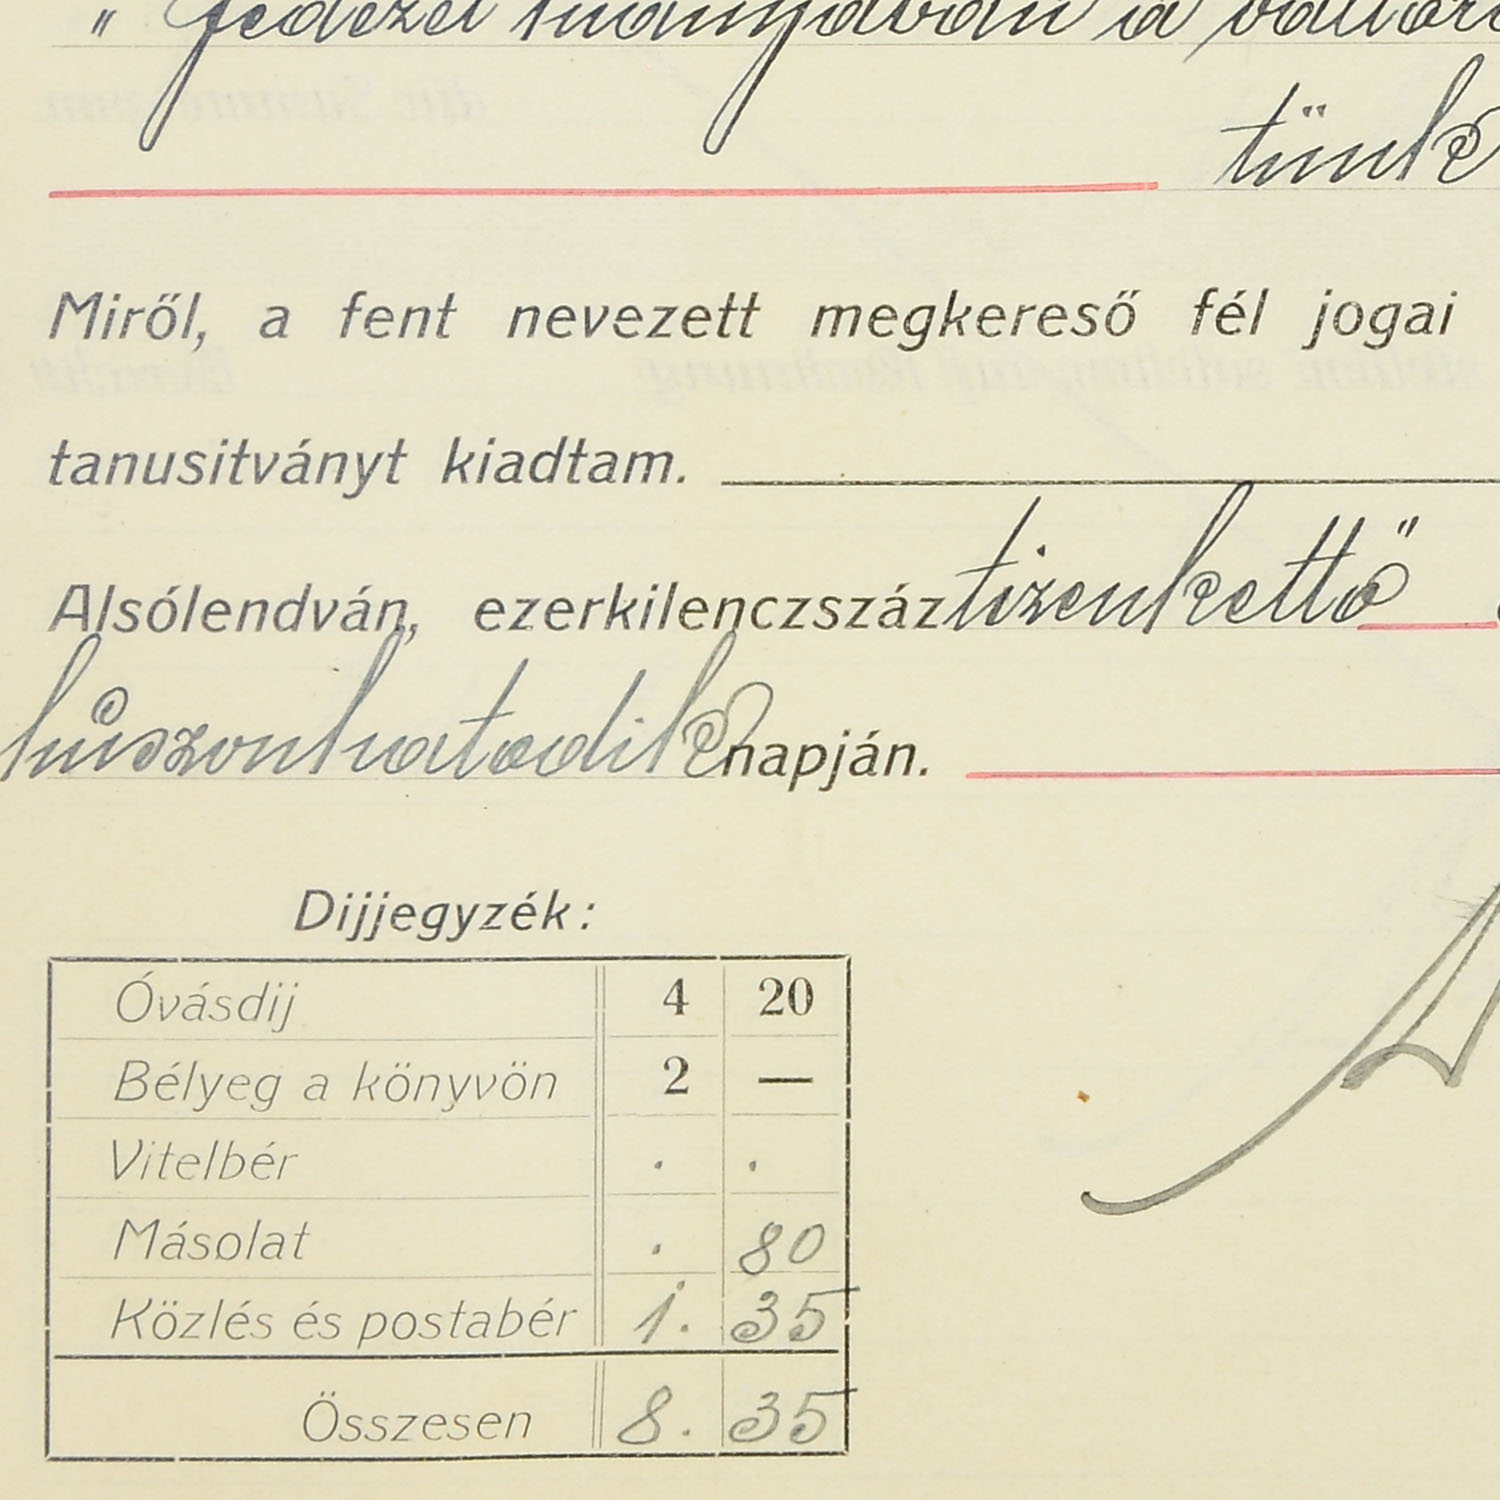 „ fedezet hiányában a
tünk
Miről, a fent nevezett megkereső fél jogai
tanusitványt kiadtam.
Alsólendván, ezerkilenczszáz tizenkettő
húszonhatodik napján.
Dijjegyzék:
Óvásdij 4 20
Bélyeg a könyvön 2 —
Vitelbér . .
Másolat . 80
Közlés és postabér 1. 35
Összesen 8. 35